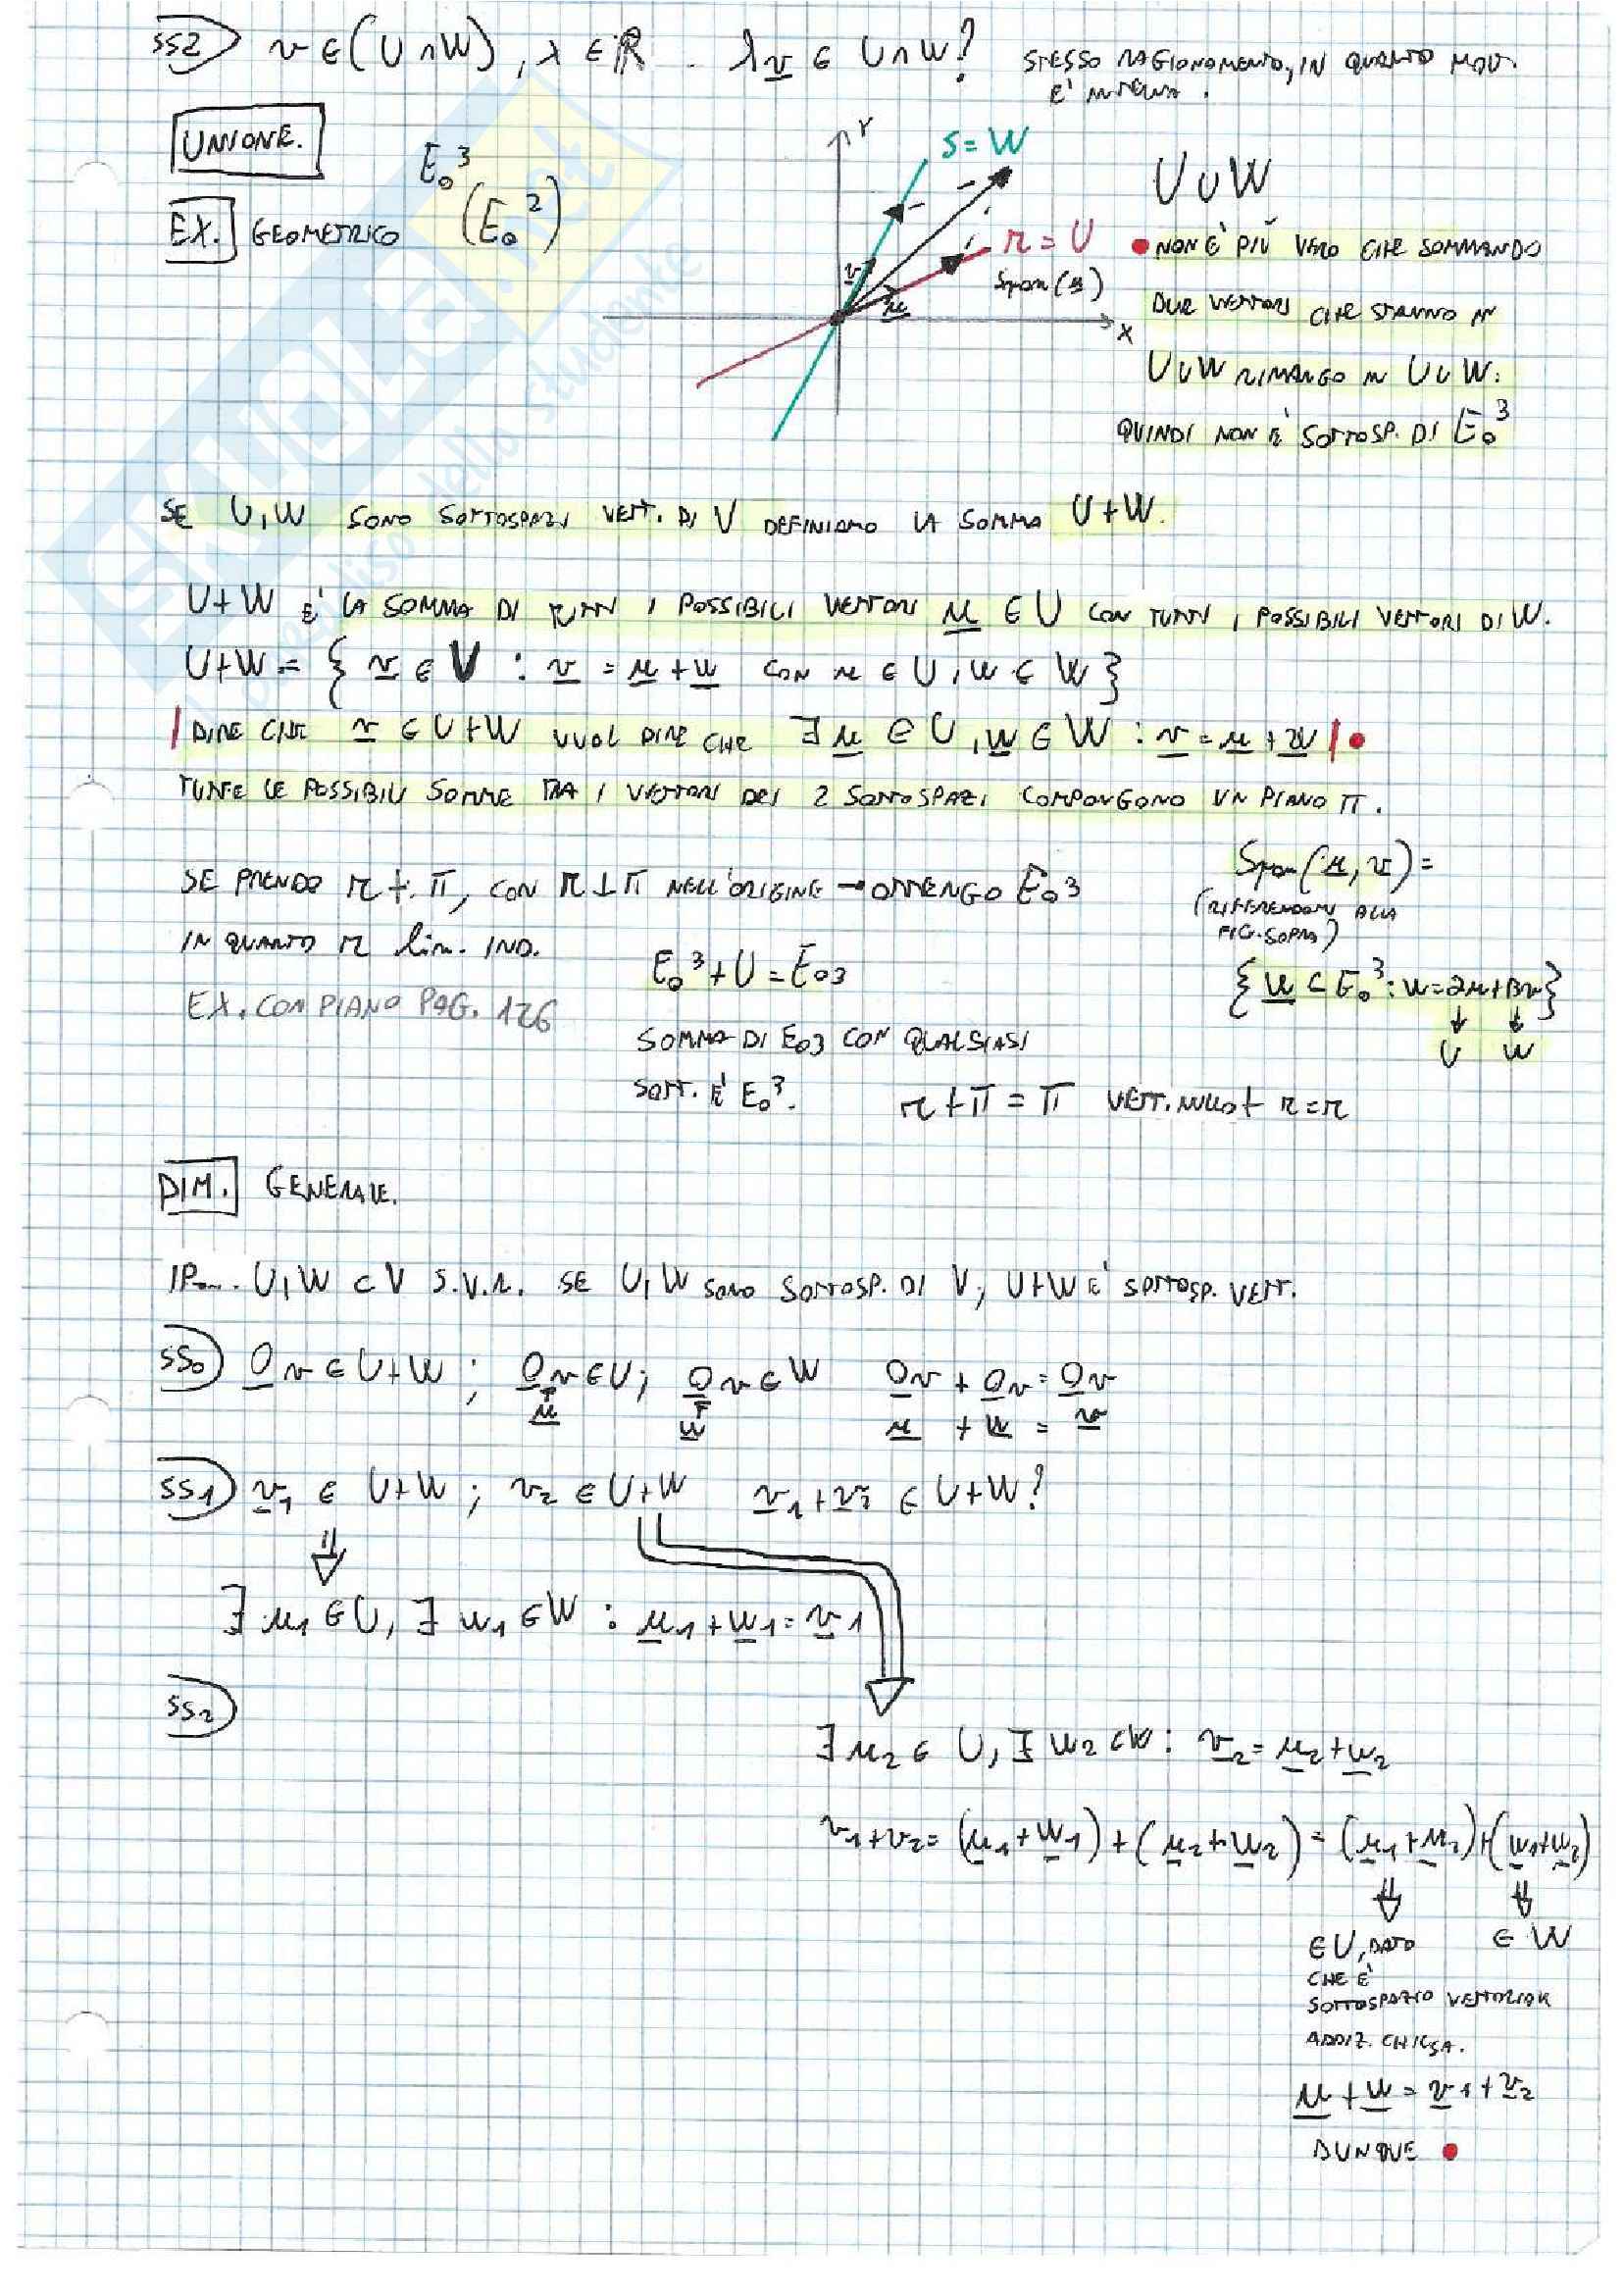 SS2) v ∈ (U ∩ W), λ ∈ ℝ . λv ∈ U ∩ W? STESSO RAGIONAMENTO, IN QUANTO MOLT.
E' INTERNA.
UNIONE.
E₀³
(E₀²)
EX. GEOMETRICO
Y
S = W
r = U
Span(u)
v
u
X
U ∪ W
NON È PIÙ VERO CHE SOMMANDO
DUE VETTORI CHE STANNO IN
U ∪ W RIMANGO IN U ∪ W.
QUINDI NON È SOTTOSP. DI E₀³
SE U, W SONO SOTTOSPAZI VETT. DI V DEFINIAMO LA SOMMA U + W.
U + W E' LA SOMMA DI TUTTI I POSSIBILI VETTORI u ∈ U CON TUTTI I POSSIBILI VETTORI DI W.
U + W = { v ∈ V : v = u + w CON u ∈ U, w ∈ W }
| DIRE CHE v ∈ U + W VUOL DIRE CHE ∃ u ∈ U, w ∈ W : v = u + w |
TUTTE LE POSSIBILI SOMME TRA I VETTORI DEI 2 SOTTOSPAZI COMPONGONO UN PIANO π.
SE PRENDO r + π, CON r ⊥ π NELL'ORIGINE → OTTENGO E₀3
IN QUANTO r lin. IND.
EX. CON PIANO PAG. 126
E₀³ + U = E₀3
SOMMA DI E₀3 CON QUALSIASI
SOTT. È E₀³.
r + π = π VETT. NULLO + r = r
Span(u, v) =
(RIFERENDOMI ALLA
FIG. SOPRA)
{ w ⊂ E₀³ : w = αu + βv }
U W
DIM. GENERALE.
U, W ⊂ V S.V.R. SE U, W SONO SOTTOSP. DI V, U + W E' SOTTOSP. VETT.
SS0) 0v ∈ U + W ; 0v ∈ U ; 0v ∈ W 0v + 0v = 0v
u w u + w = v
SS1) v₁ ∈ U + W ; v₂ ∈ U + W v₁ + v₂ ∈ U + W?
∃ u₁ ∈ U, ∃ w₁ ∈ W : u₁ + w₁ = v₁
SS2)
∃ u₂ ∈ U, ∃ w₂ ⊂ W : v₂ = u₂ + w₂
v₁ + v₂ = (u₁ + w₁) + (u₂ + w₂) = (u₁ + u₂) + (w₁ + w₂)
∈ U, DATO ∈ W
CHE È
SOTTOSPAZIO VETTORIALE
ADDIZ. CHIUSA.
u + w = v₁ + v₂
DUNQUE
SKUOLA.net
il paradiso dello studente